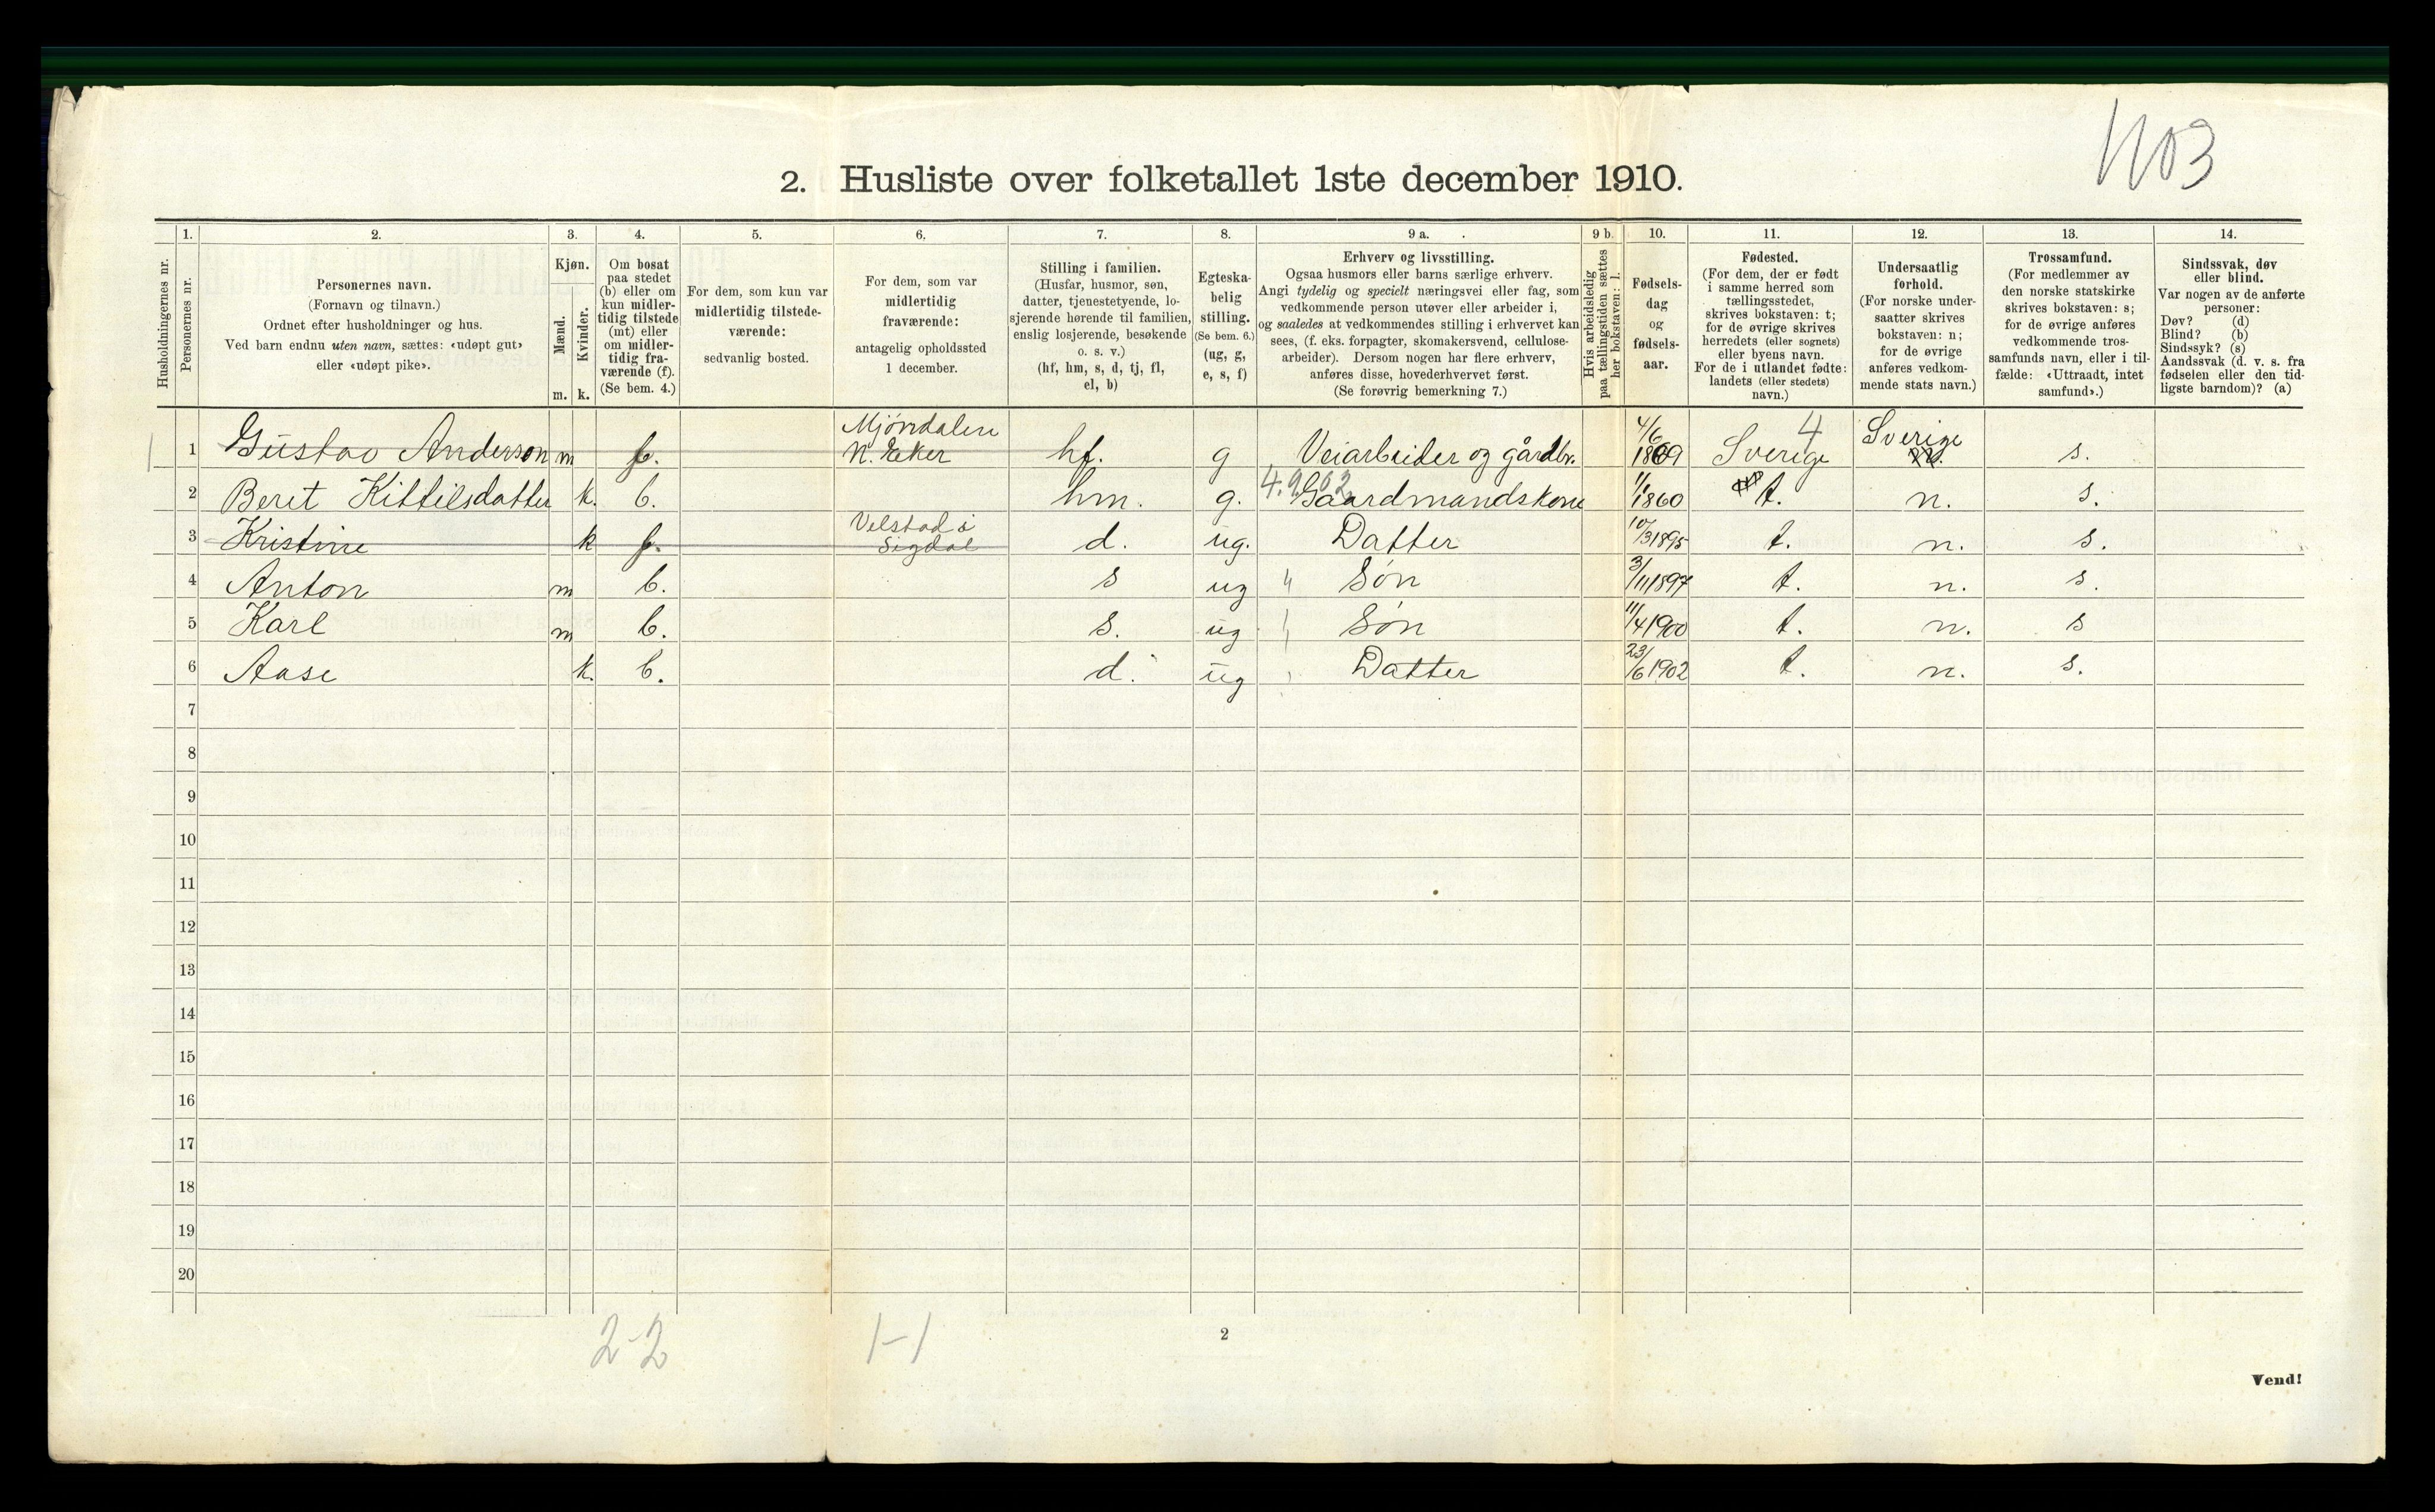 1103
2. Husliste over folketallet 1ste december 1910.
1. 2. 3. 4. 5. 6. 7. 8. 9 a. 9 b. 10. 11. 12. 13. 14.
Husholdningernes nr.
Personernes nr.
Personernes navn.
(Fornavn og tilnavn.)
Ordnet efter husholdninger og hus.
Ved barn endnu uten navn, sættes: «udøpt gut»
eller «udøpt pike».
Kjøn.
Mænd.
Kvinder.
m. k.
Om bosat
paa stedet
(b) eller om
kun midler-
tidig tilstede
(mt) eller
om midler-
tidig fra-
værende (f).
(Se bem. 4.)
For dem, som kun var
midlertidig tilstede-
værende:
sedvanlig bosted.
For dem, som var
midlertidig
fraværende:
antagelig opholdssted
1 december.
Stilling i familien.
(Husfar, husmor, søn,
datter, tjenestetyende, lo-
sjerende hørende til familien,
enslig losjerende, besøkende
o. s. v.)
(hf, hm, s, d, tj, fl,
el, b)
Egteska-
belig
stilling.
(Se bem. 6.)
(ug, g,
e, s, f)
Erhverv og livsstilling.
Ogsaa husmors eller barns særlige erhverv.
Angi tydelig og specielt næringsvei eller fag, som
vedkommende person utøver eller arbeider i,
og saaledes at vedkommendes stilling i erhvervet kan
sees, (f. eks. forpagter, skomakersvend, cellulose-
arbeider). Dersom nogen har flere erhverv,
anføres disse, hovederhvervet først.
(Se forøvrig bemerkning 7.)
Hvis arbeidsledig
paa tællingstiden sættes
her bokstaven: l.
Fødsels-
dag
og
fødsels-
aar.
Fødested.
(For dem, der er født
i samme herred som
tællingsstedet,
skrives bokstaven: t;
for de øvrige skrives
herredets (eller sognets)
eller byens navn.
For de i utlandet fødte:
landets (eller stedets)
navn.)
Undersaatlig
forhold.
(For norske under-
saatter skrives
bokstaven: n;
for de øvrige
anføres vedkom-
mende stats navn.)
Trossamfund.
(For medlemmer av
den norske statskirke
skrives bokstaven: s;
for de øvrige anføres
vedkommende tros-
samfunds navn, eller i til-
fælde: «Uttraadt, intet
samfund».)
Sindssvak, døv
eller blind.
Var nogen av de anførte
personer:
Døv? (d)
Blind? (b)
Sindssyk? (s)
Aandssvak (d. v. s. fra
fødselen eller den tid-
ligste barndom)? (a)
Mjöndalen 4/6 4 Sverige
1 1 Gustav Anderson m f. N. Eker hf. g Veiarbeider og gårdbr. 1869 Sverige n. s.
4.9.02 1/1
2 Beret Kittilsdatter k. b. hm. g. Gaardmandskone 1860 t. n. s.
Velstad i
3 Kristine k f. Sigdal d. ug. Datter 10/3 1895 t. n. s.
4 Anton m b. s ug " Søn 3/11 1897 t. n. s.
5 Karl m b. s. ug Søn 11/4 1900 t. n. s
6 Aase k. b. d. ug Datter 23/6 1902 t. n. s.
7
8
9
10
11
12
13
14
15
16
17
18
19
20
2-2 1-1 2
Vend!